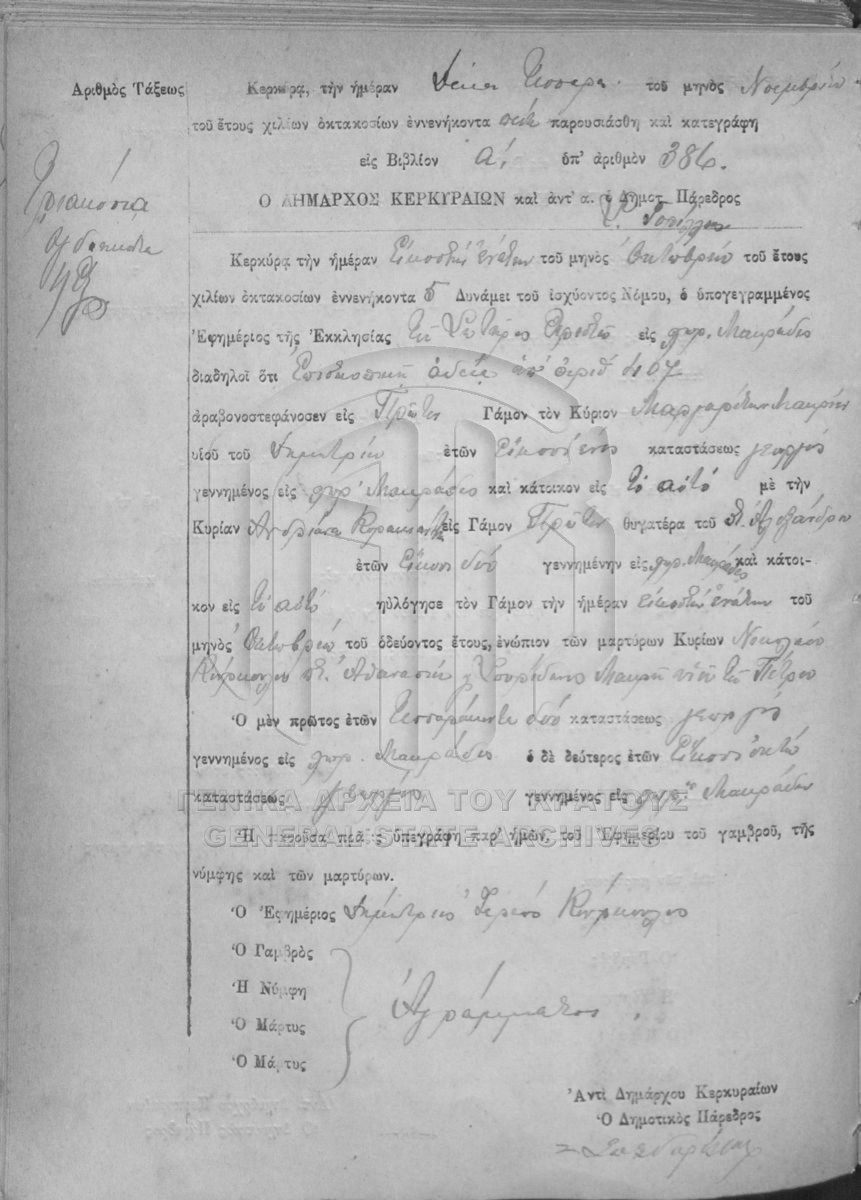 Ἀριθμὸς Τάξεως
Τριακόσια
ὀγδοήκοντα
Κερκύρα, τὴν ἡμέραν Δέκα Τέσσαρα τοῦ μηνὸς Νοεμβρίου
τοῦ ἔτους χιλίων ὀκτακοσίων ἐννενήκοντα πέντε παρουσιάσθη καὶ κατεγράφη
εἰς Βιβλίον Α΄. ὑπ' ἀριθμὸν 386.
Ο ΔΗΜΑΡΧΟΣ ΚΕΡΚΥΡΑΙΩΝ καὶ ἀντ' α. ὁ Δημοτ. Πάρεδρος
Κερκύρα τὴν ἡμέραν Εἰκοστὴν ἐνάτην τοῦ μηνὸς Ὀκτωβρίου τοῦ ἔτους
χιλίων ὀκτακοσίων ἐννενήκοντα 5 Δυνάμει τοῦ ἰσχύοντος Νόμου, ὁ ὑπογεγραμμένος
Ἐφημέριος τῆς Ἐκκλησίας τοῦ Σωτῆρος Χριστοῦ εἰς χωρ. Μακράδες
διαδηλοῖ ὅτι Ἐπισκοπικῇ ἀδείᾳ ὑπ' ἀριθ 407
ἀραβονοστεφάνοσεν εἰς Πρῶτον Γάμον τὸν Κύριον Μαργαρίτην Μακρῆν
υἱοῦ τοῦ Δημητρίου ἐτῶν Εἰκοσιένος καταστάσεως γεωργός
γεννημένος εἰς χωρ. Μακράδες καὶ κάτοικον εἰς τὸ αὐτό μὲ τὴν
Κυρίαν Ἀνδριάνα εἰς Γάμον Πρῶτον θυγατέρα τοῦ Ἀλεξάνδρου
ἐτῶν Εἴκοσι δύο γεννημένην εἰς χωρ. Μακράδες καὶ κάτοι-
κον εἰς τὸ αὐτό ηὐλόγησε τὸν Γάμον τὴν ἡμέραν εἰκοστὴν ἐνάτην τοῦ
μηνὸς Ὀκτωβρίου τοῦ ὁδεύοντος ἔτους, ἐνώπιον τῶν μαρτύρων Κυρίων Νικολάου
Κούρκουλου Ἀθανασίου Σπυρίδωνος Μακρῆ υἱοῦ τοῦ Πέτρου
Ὁ μὲν πρῶτος ἐτῶν Τεσσαράκοντα δύο καταστάσεως γεωργός
γεννημένος εἰς χωρ. Μακράδες ὁ δὲ δεύτερος ἐτῶν Εἴκοσι ὀκτώ
καταστάσεως γεωργός γεννημένος εἰς χωρ. Μακράδες
ΓΕΝΙΚΑ ΑΡΧΕΙΑ ΤΟΥ ΚΡΑΤΟΥΣ
GENERAL STATE ARCHIVES
Ἡ παροῦσα πρᾶξις ὑπεγράφη παρ' ἡμῶν, τοῦ Ἐφημερίου τοῦ γαμβροῦ, τῆς
νύμφης καὶ τῶν μαρτύρων.
Ὁ Ἐφημέριος Δημήτριος Ἱερεύς Κούρκουλος
Ὁ Γαμβρὸς
Ἡ Νύμφη
Ἀγράμματος
Ὁ Μάρτυς
Ὁ Μάρτυς
Ἀντὶ Δημάρχου Κερκυραίων
Ὁ Δημοτικὸς Πάρεδρος